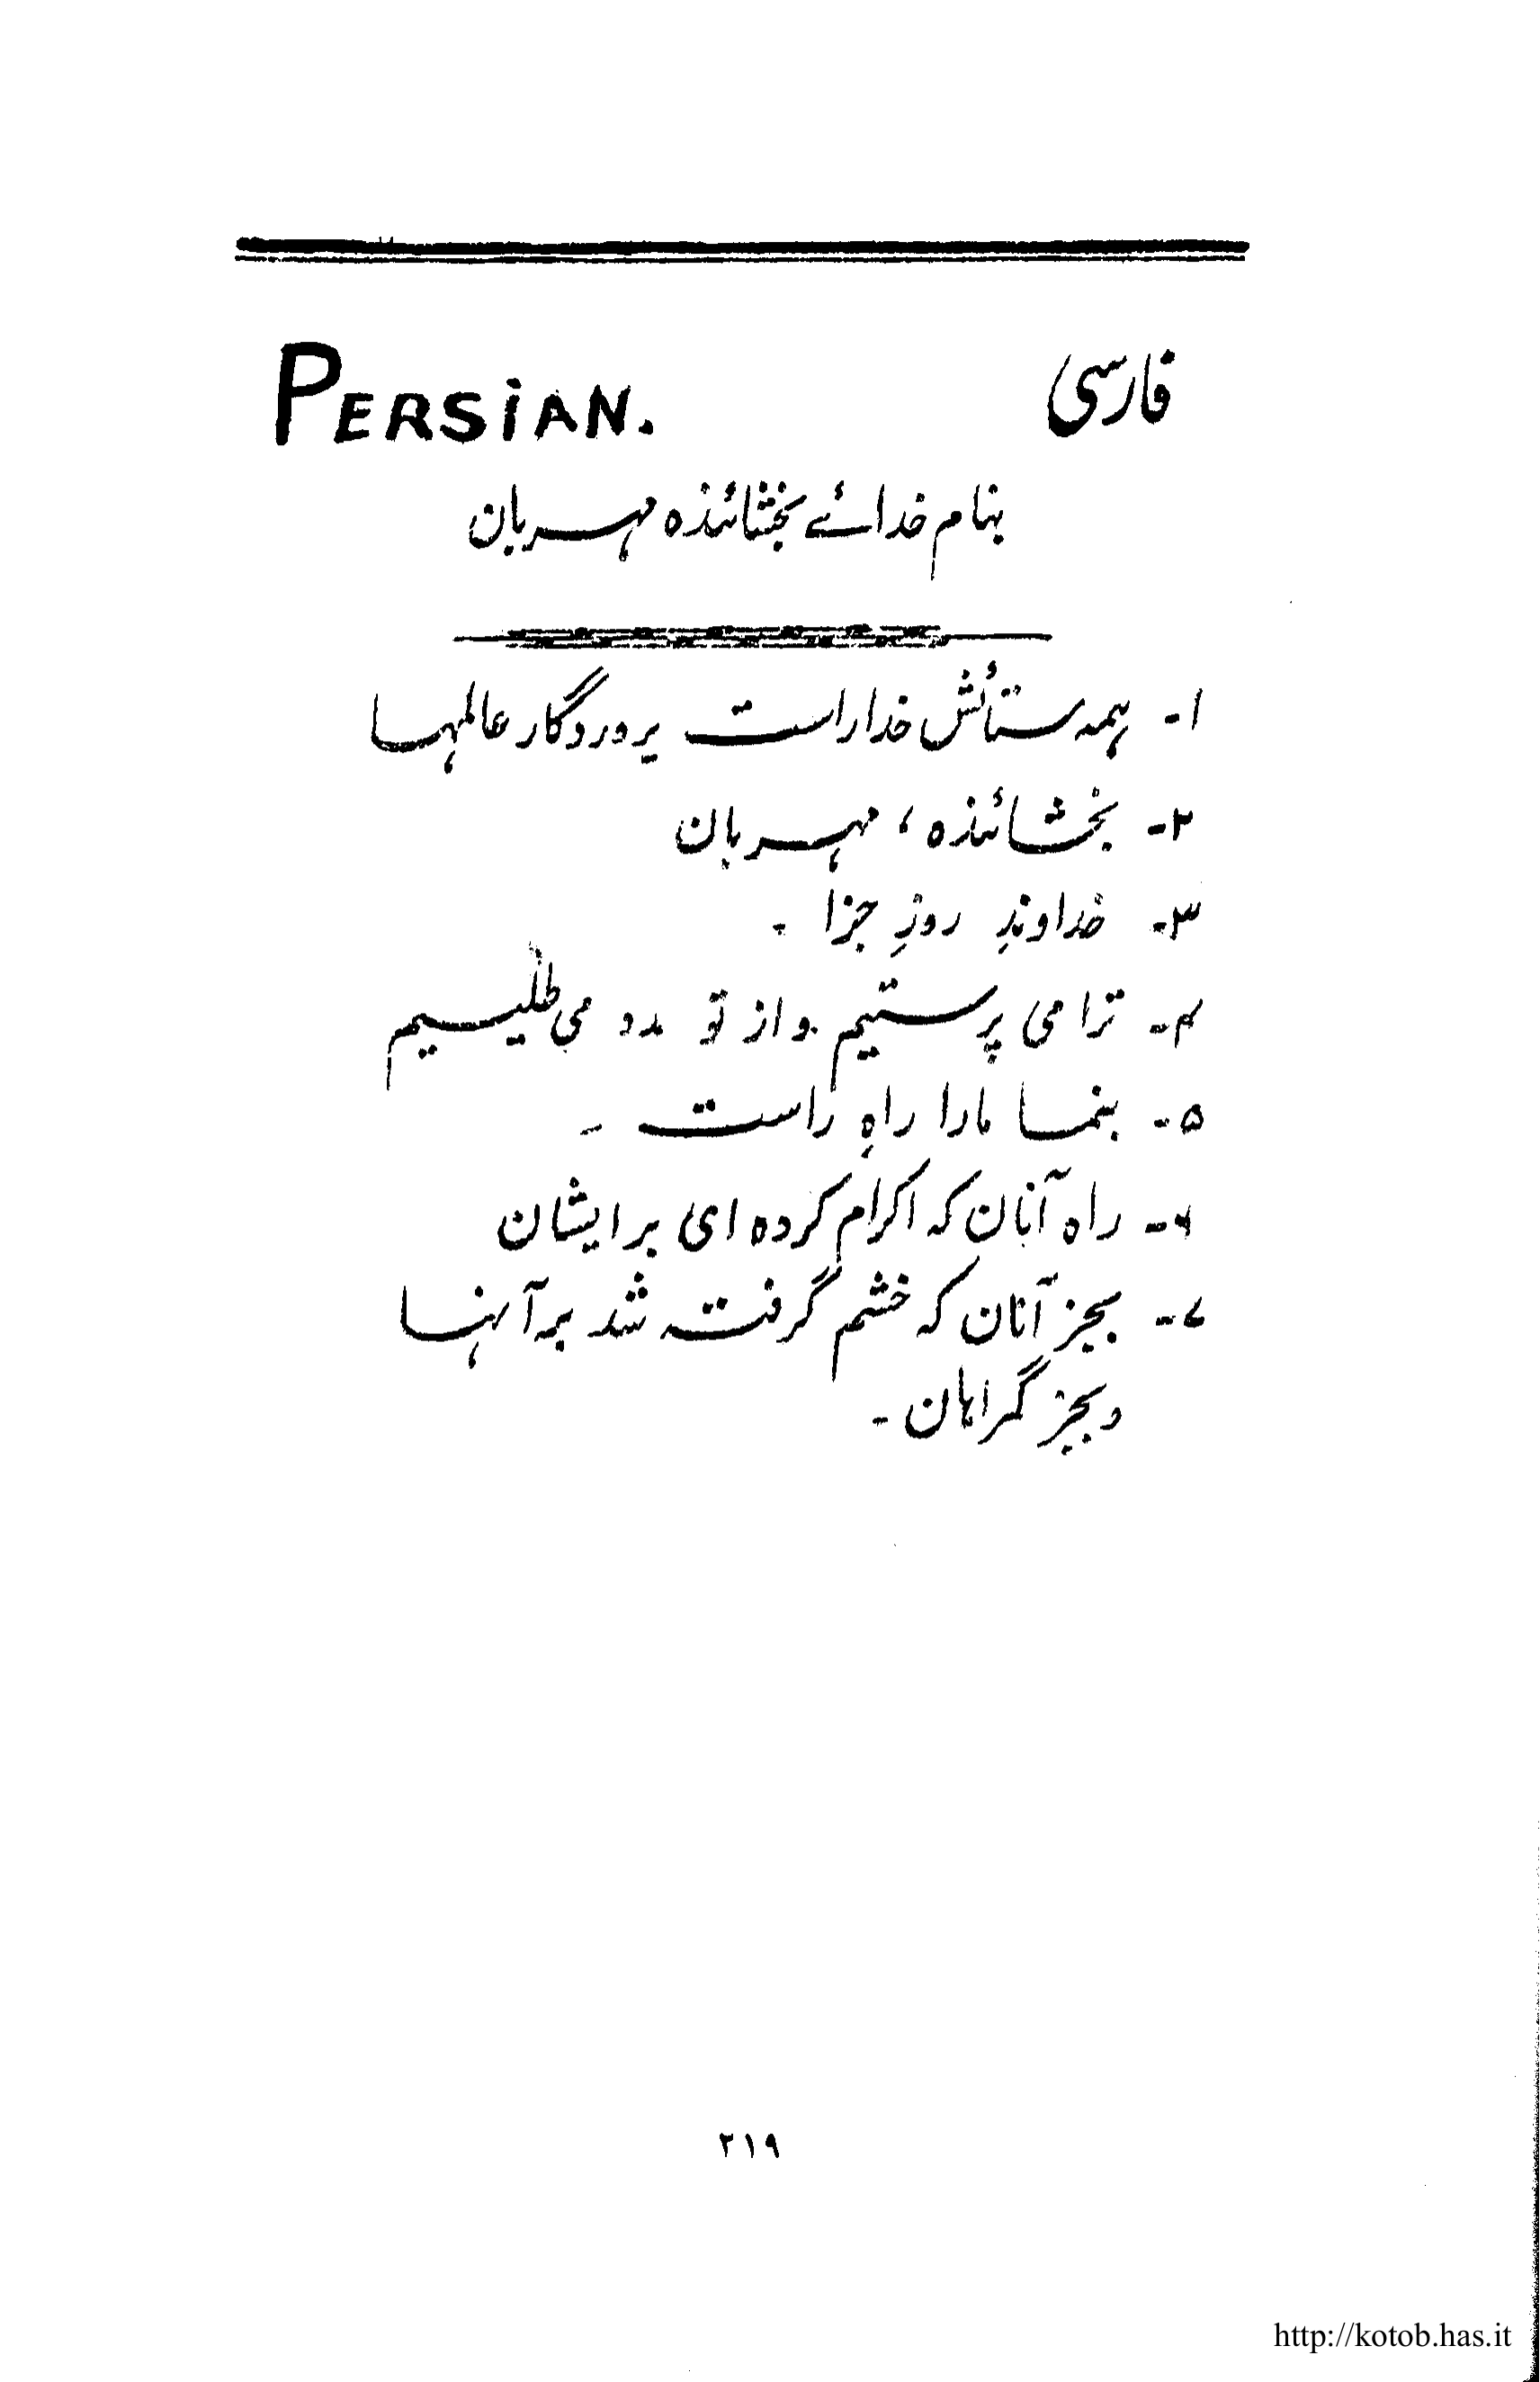 PERSiAN. فارسی
بنام خدائے بخشائندہ مہربان
۱- ہمہ ستائش خداراست پروردگار عالمہا
۲- بخشائندہ، مہربان
۳- خداوندِ روزِ جزا -
۴- ترا می پرستیم و از تو مدد می طلبیم
۵- بنما مارا راہِ راست -
۶- راہ آنان کہ اکرام کردہ ای بر ایشان
۷- بجز آنان کہ خشم گرفتہ شد بر آنہا
و بجز گمراہان -
۲۱۹
http://kotob.has.it